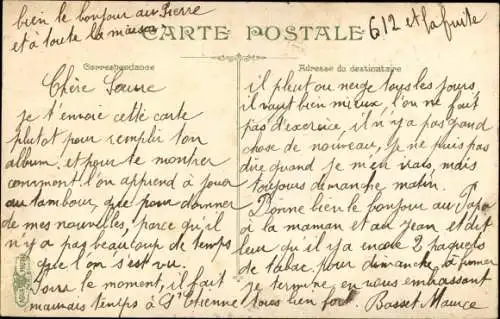 bien le bonjour au Pierre
et à toute la maison
612 et la fuite
CARTE POSTALE
Correspondance
Adresse du destinataire
Chère Soeure
je t'envoie cette carte
plutot pour remplir ton
album. et pour te montrer
comment l'on apprend à jouer
au tambour, que pour donner
de mes nouvelles, parce qu'il
n'y a pas beaucoup de temps
que l'on s'est vu.
Pour le moment, il fait
mauvais temps à St Etienne
il pleut ou neige tous les jours
il vaut bien mieux, l'on ne fait
pas d'exercice, il n'y a pas grand
chose de nouveau, je ne puis pas
dire quand je m'en irais, mais
toujours dimanche matin.
Donne bien le bonjour au Papa
à la maman et au Jean et dit
leur qu'il y a encore 2 paquets
de tabac pour dimanche, à fumer
je termine, en vous embrassant
tous bien fort. Basset Maurice